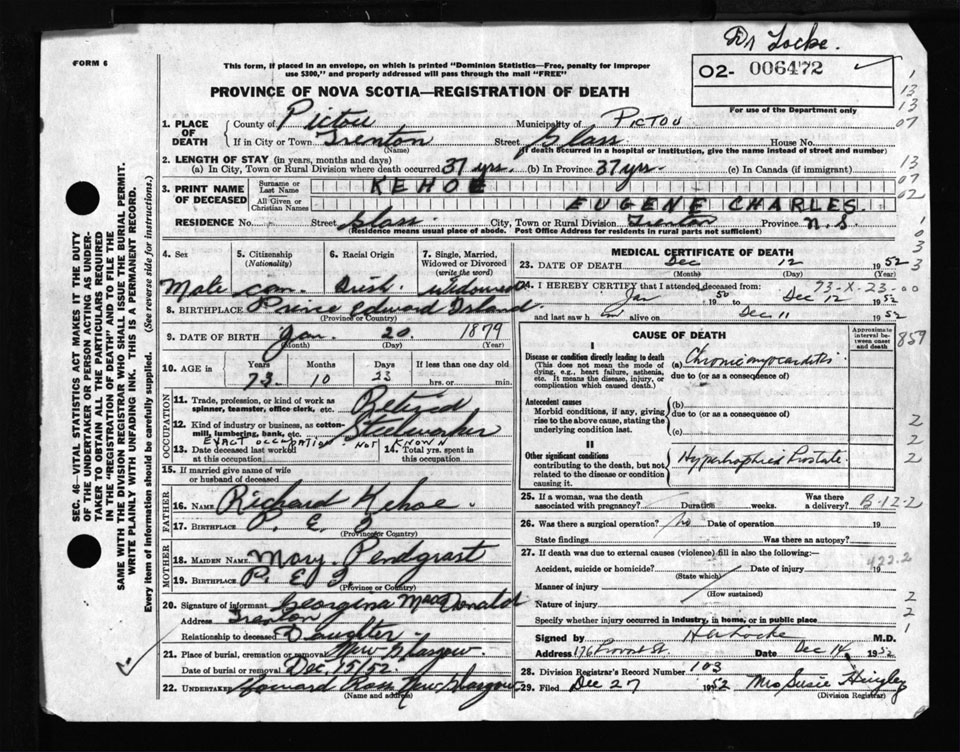 Dr Locke.
FORM 6
This form, if placed in an envelope, on which is printed "Dominion Statistics—Free, penalty for improper
use $300," and properly addressed will pass through the mail "FREE"
02- 006472
PROVINCE OF NOVA SCOTIA—REGISTRATION OF DEATH
For use of the Department only
1. PLACE OF DEATH County of Pictou Municipality of PICTOU
If in City or Town Trenton (Name) Street Glass House No.
(If death occurred in a hospital or institution, give the name instead of street and number)
2. LENGTH OF STAY (in years, months and days)
(a) In City, Town or Rural Division where death occurred 37 yrs. (b) In Province 37 yrs. (c) In Canada (if immigrant)
3. PRINT NAME OF DECEASED Surname or Last Name KEHOE
All Given or Christian Names EUGENE CHARLES.
RESIDENCE No. Street Glass. City, Town or Rural Division Trenton Province N.S
(Residence means usual place of abode. Post Office Address for residents in rural parts not sufficient)
4. Sex Male
5. Citizenship (Nationality) Can.
6. Racial Origin Irish.
7. Single, Married, Widowed or Divorced (write the word) Widowed
8. BIRTHPLACE Prince Edward Island
(Province or Country)
9. DATE OF BIRTH Jan. 20. 1879
(Month) (Day) (Year)
10. AGE in Years Months Days If less than one day
73. 10 23 hrs. or min.
OCCUPATION
11. Trade, profession, or kind of work as spinner, teamster, office clerk, etc. Retired
12. Kind of industry or business, as cotton-mill, lumbering, bank, etc. Steelworker
EXACT OCCUPATION NOT KNOWN
13. Date deceased last worked at this occupation
14. Total yrs. spent in this occupation
15. If married give name of wife or husband of deceased
FATHER
16. Name Richard Kehoe.
17. Birthplace P.E.I
(Province or Country)
MOTHER
18. Maiden Name Mary Pendgrast
19. Birthplace P.E.I.
(Province or Country)
20. Signature of informant Georgena MacDonald
Address Trenton
Relationship to deceased Daughter.
21. Place of burial, cremation or removal New Glasgow.
Date of burial or removal Dec. 15/52.
22. Undertaker Ross New Glasgow
(Name and address)
MEDICAL CERTIFICATE OF DEATH
23. DATE OF DEATH Dec 12 1952
(Month) (Day)
24. I HEREBY CERTIFY that I attended deceased from 73-X-23-00
Jan 1950 to Dec 12 1952
and last saw h alive on Dec 11 1952
CAUSE OF DEATH
Approximate interval between onset and death
I
Disease or condition directly leading to death
(This does not mean the mode of dying, e.g., heart failure, asthenia, etc. It means the disease, injury, or complication which caused death.)
(a) Chronic myocarditis
due to (or as a consequence of)
Antecedent causes
Morbid conditions, if any, giving rise to the above cause, stating the underlying condition last.
(b)
due to (or as a consequence of)
(c)
II
Other significant conditions
contributing to the death, but not related to the disease or condition causing it.
Hypertrophied Prostate
25. If a woman, was the death associated with pregnancy? Duration weeks. Was there a delivery? B-12-2
26. Was there a surgical operation? No Date of operation 19
State findings Was there an autopsy?
27. If death was due to external causes (violence) fill in also the following:
Accident, suicide or homicide? (State which) Date of injury 19
422.2
Manner of injury (How sustained)
Nature of injury
Specify whether injury occurred in industry, in home, or in public place
Signed by H A Locke M.D.
Address 176 Provost St. Date Dec 14 1952
28. Division Registrar's Record Number 103
29. Filed Dec 27 1952 Mrs Susie Hingley
(Division Registrar)
SEC. 46—VITAL STATISTICS ACT MAKES IT THE DUTY
OF THE UNDERTAKER OR PERSON ACTING AS UNDER-
TAKER TO OBTAIN ALL THE PARTICULARS REQUIRED
IN THE "REGISTRATION OF DEATH" AND TO FILE THE
SAME WITH THE DIVISION REGISTRAR WHO SHALL ISSUE THE BURIAL PERMIT.
WRITE PLAINLY WITH UNFADING INK. THIS IS A PERMANENT RECORD.
Every item of information should be carefully supplied. (See reverse side for instructions.)
1
13
13
07
13
07
02
1
0
3
3
859
2
2
2
2
2
1